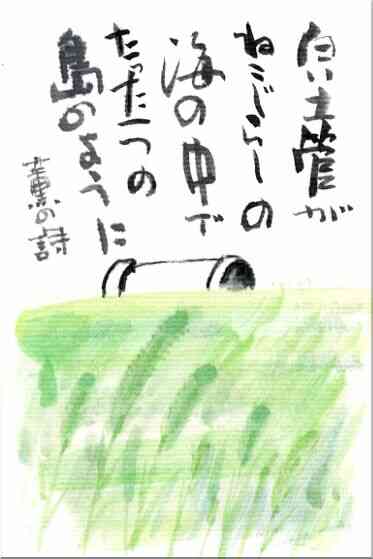 白い土管が
ねこじらしの
海の中で
たった一つの
島のように
薫の詩